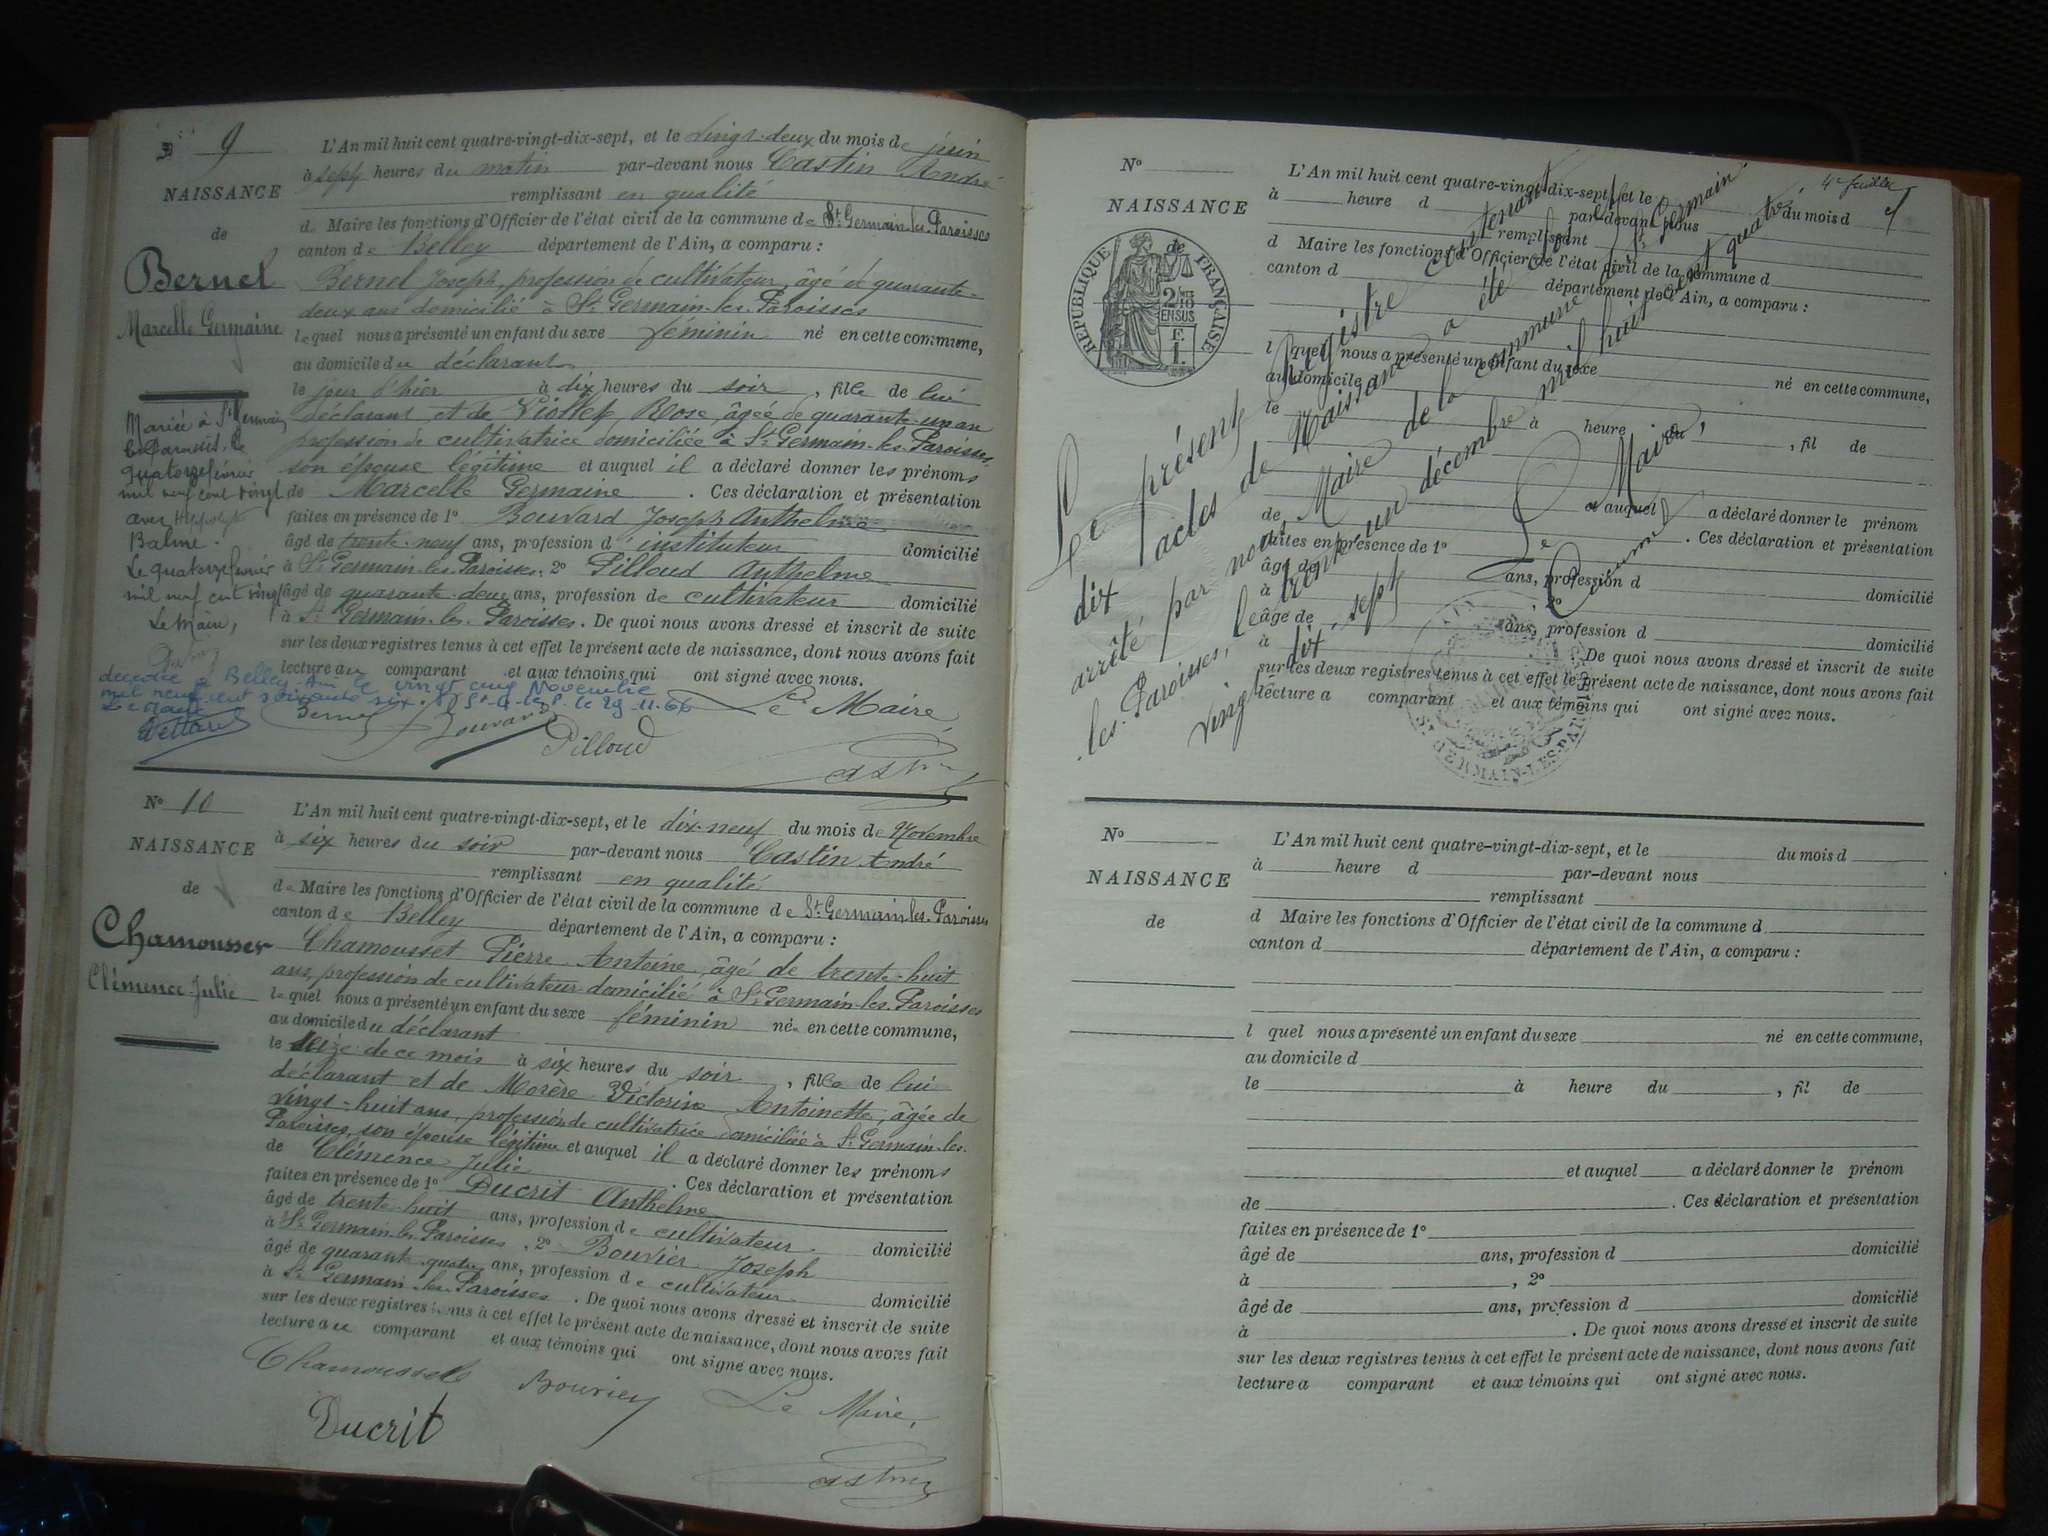 N° 9
NAISSANCE
de
Bernel
Marcelle Germaine
Mariée à St Germain
les Paroisses, le
quatorze février
mil neuf cent vingt
avec Hippolyte
Balme.
Le quatorze février
mil neuf cent vingt
Le Maire,
décédée à Belley Ain le vingt cinq Novembre
mil neuf cent soixante six. St G. les P. le 29.11.66
Le Maire
L'An mil huit cent quatre-vingt-dix-sept, et le vingt-deux du mois de juin
à sept heures du matin par-devant nous Castin André
remplissant en qualité
de Maire les fonctions d'Officier de l'état civil de la commune de St. Germain-les-Paroisses
canton de Belley département de l'Ain, a comparu :
Bernel Joseph, profession de cultivateur, âgé de quarante-
deux ans domicilié à St. Germain-les-Paroisses
lequel nous a présenté un enfant du sexe féminin né en cette commune,
au domicile du déclarant
le jour d'hier à dix heures du soir, fille de lui
déclarant et de Viollet Rose âgée de quarante-un an
profession de cultivatrice domiciliée à St. Germain-les-Paroisses,
son épouse légitime et auquel il a déclaré donner les prénoms
de Marcelle Germaine. Ces déclaration et présentation
faites en présence de 1° Bouvard Joseph Anthelme
âgé de trente-neuf ans, profession d'instituteur domicilié
à St. Germain-les-Paroisses, 2° Pilloud Anthelme
âgé de quarante-deux ans, profession de cultivateur domicilié
à St. Germain-les-Paroisses. De quoi nous avons dressé et inscrit de suite
sur les deux registres tenus à cet effet le présent acte de naissance, dont nous avons fait
lecture au comparant et aux témoins qui ont signé avec nous.
Bernel Bouvard Le Maire
Pilloud
Castin
N° 10
NAISSANCE
de
Chamousset
Clémence Julie
L'An mil huit cent quatre-vingt-dix-sept, et le dix-neuf du mois de Novembre
à six heures du soir par-devant nous Castin André
remplissant en qualité
de Maire les fonctions d'Officier de l'état civil de la commune de St. Germain-les-Paroisses
canton de Belley département de l'Ain, a comparu :
Chamousset Pierre Antoine, âgé de trente-huit
ans, profession de cultivateur domicilié à St. Germain-les-Paroisses
lequel nous a présenté un enfant du sexe féminin né en cette commune,
au domicile du déclarant
le seize de ce mois à six heures du soir, fille de lui
déclarant et de Morère Victorine Antoinette, âgée de
vingt-huit ans, profession de cultivatrice domiciliée à St. Germain-les-
Paroisses, son épouse légitime et auquel il a déclaré donner les prénoms
de Clémence Julie. Ces déclaration et présentation
faites en présence de 1° Ducrit Anthelme
âgé de trente-huit ans, profession de cultivateur domicilié
à St. Germain-les-Paroisses, 2° Bouvier Joseph
âgé de quarante-quatre ans, profession de cultivateur domicilié
à St. Germain-les-Paroisses. De quoi nous avons dressé et inscrit de suite
sur les deux registres tenus à cet effet le présent acte de naissance, dont nous avons fait
lecture au comparant et aux témoins qui ont signé avec nous.
Chamousset Bouvier Le Maire,
Ducrit
Castin
4e feuillet
N°
NAISSANCE
RÉPUBLIQUE FRANÇAISE
2/10 EN SUS
F. 1.
L'An mil huit cent quatre-vingt-dix-sept, et le du mois d
à heure d par-devant nous
remplissant
d Maire les fonctions d'Officier de l'état civil de la commune d
canton d département de l'Ain, a comparu :
l quel nous a présenté un enfant du sexe né en cette commune,
au domicile
le à heure du , fil de
et auquel a déclaré donner le prénom
de . Ces déclaration et présentation
faites en présence de 1°
âgé de ans, profession d domicilié
à , 2°
âgé de ans, profession d domicilié
à . De quoi nous avons dressé et inscrit de suite
sur les deux registres tenus à cet effet le présent acte de naissance, dont nous avons fait
lecture a comparant et aux témoins qui ont signé avec nous.
Le présent Registre contenant
dix actes de Naissance a été clos et
arrêté par nous Maire de la commune de St Germain
les-Paroisses, le trente-un décembre mil huit cent quatre
vingt dix-sept
Le Maire,
ST GERMAIN-LES-PAROISSES
N°
NAISSANCE
de
L'An mil huit cent quatre-vingt-dix-sept, et le du mois d
à heure d par-devant nous
remplissant
d Maire les fonctions d'Officier de l'état civil de la commune d
canton d département de l'Ain, a comparu :
l quel nous a présenté un enfant du sexe né en cette commune,
au domicile d
le à heure du , fil de
et auquel a déclaré donner le prénom
de . Ces déclaration et présentation
faites en présence de 1°
âgé de ans, profession d domicilié
à , 2°
âgé de ans, profession d domicilié
à . De quoi nous avons dressé et inscrit de suite
sur les deux registres tenus à cet effet le présent acte de naissance, dont nous avons fait
lecture a comparant et aux témoins qui ont signé avec nous.